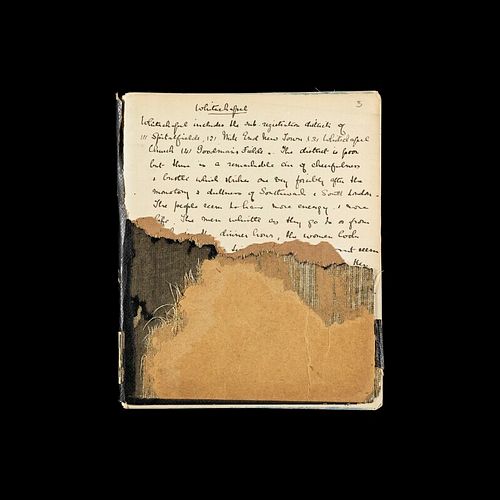 3
Whitechapel
Whitechapel includes the sub-registration districts of
(1) Spitalfields, (2) Mile End New Town (3) Whitechapel
Church (4) Goodman's Fields. The district is poor
but there is a remarkable air of cheerfulness
& bustle which strikes one very forcibly after the
monotony & dullness of Southwark & South London.
The people seem to have more energy & more
life. The men whistle as they go to & from
the dinner hour, the women look
seem